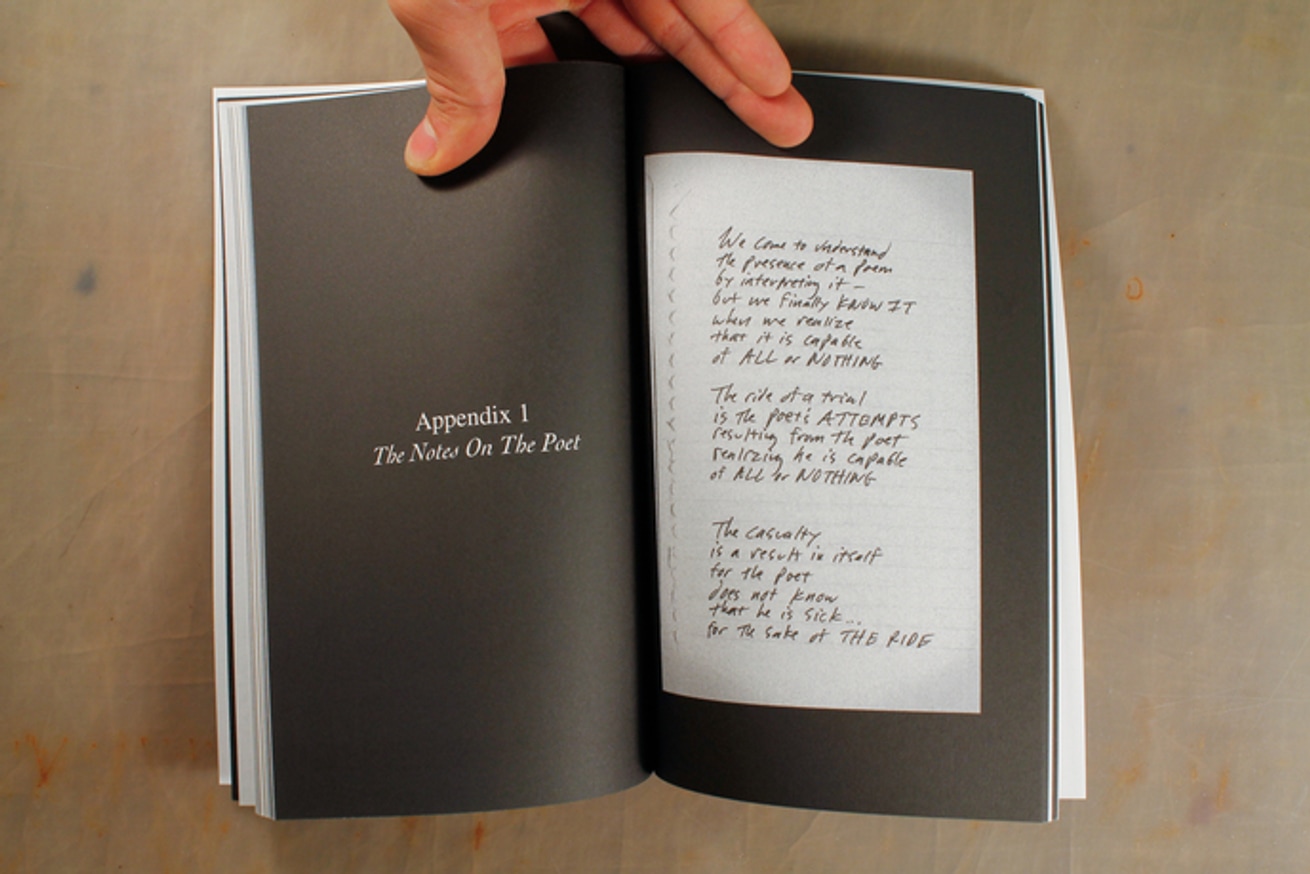 Appendix 1
The Notes On The Poet
We come to understand
the presence of a poem
by interpreting it –
but we finally KNOW IT
when we realize
that it is capable
of ALL or NOTHING
The ride of a trial
is the poet's ATTEMPTS
resulting from the poet
realizing he is capable
of ALL or NOTHING
The casualty
is a result in itself
for the poet
does not know
that he is sick...
for the sake of THE RIDE